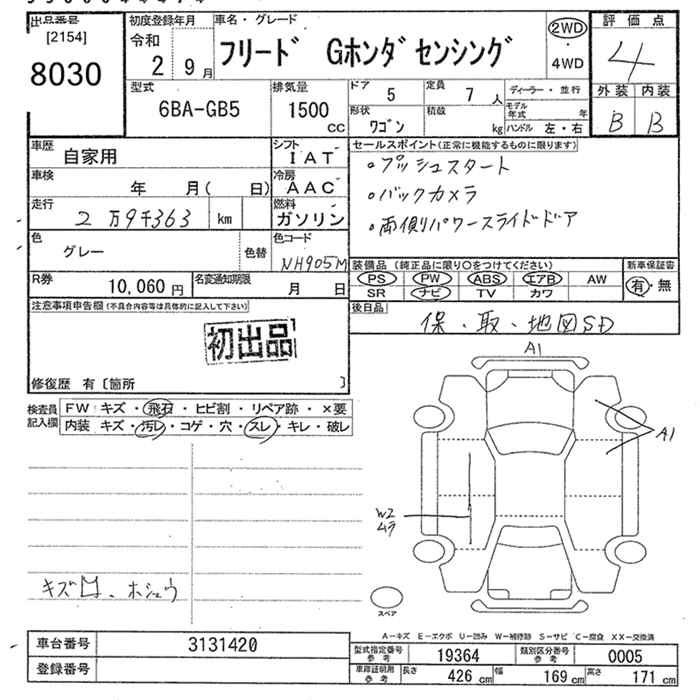 出品番号 [2154] 8030
初度登録年月 令和 2年 9月
車名・グレード フリード Gホンダセンシング
2WD・4WD
評価点 4
外装 B 内装 B
型式 6BA-GB5
排気量 1500 cc
ドア 5 定員 7人
形状 ワゴン 積載 kg
ディーラー・並行
モデル年式 年
ハンドル 左・右
車歴 自家用
シフト IAT
車検 年 月( 日)
冷房 AAC
走行 2万9千363 km
燃料 ガソリン
色 グレー 色替
色コード NH905M
R券 10,060円
名変通知期限 月 日
セールスポイント(正常に機能するものに限ります)
・プッシュスタート
・バックカメラ
・両側パワースライドドア
装備品 (純正品に限り○をつけてください)
PS PW ABS エアB AW
SR ナビ TV カワ
新車保証書 有・無
後日品 保・取・地図SD
注意事項申告欄(不具合内容等は具体的に記入して下さい)
初出品
修復歴 有 〔箇所 〕
検査員記入欄
FW キズ・飛石・ヒビ割・リペア跡・×要
内装 キズ・汚レ・コゲ・穴・スレ・キレ・破レ
A1
A1
W2
ムラ
スペア
A-キズ E-エクボ U-凹み W-補修跡 S-サビ C-腐食 XX-交換済
車台番号 3131420
登録番号
型式指定番号 参考 19364
類別区分番号 参考 0005
車庫証明用 参考 長さ 426cm 幅 169cm 高さ 171cm